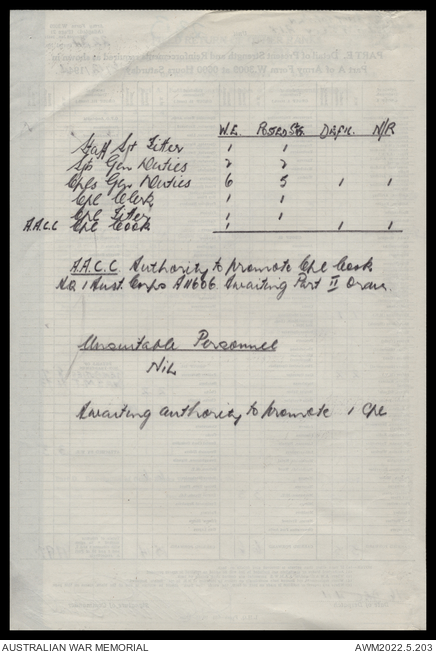 W.E. Posted Str. Defic. N/R
Staff Sgt Fitter 1 1
Sgts Gen Duties 2 2
Cpls Gen Duties 6 5 1 1
Cpl Clerk 1 1
Cpl Fitter 1 1
A.A.C.C Cpl Cook 1 1 1
A.A.C.C. Authority to promote Cpl Cook
HQ 1 Aust. Corps A11606. Awaiting Part II Order.
Unsuitable Personnel
Nil
Awaiting authority to promote 1 Cpl
AUSTRALIAN WAR MEMORIAL AWM2022.5.203